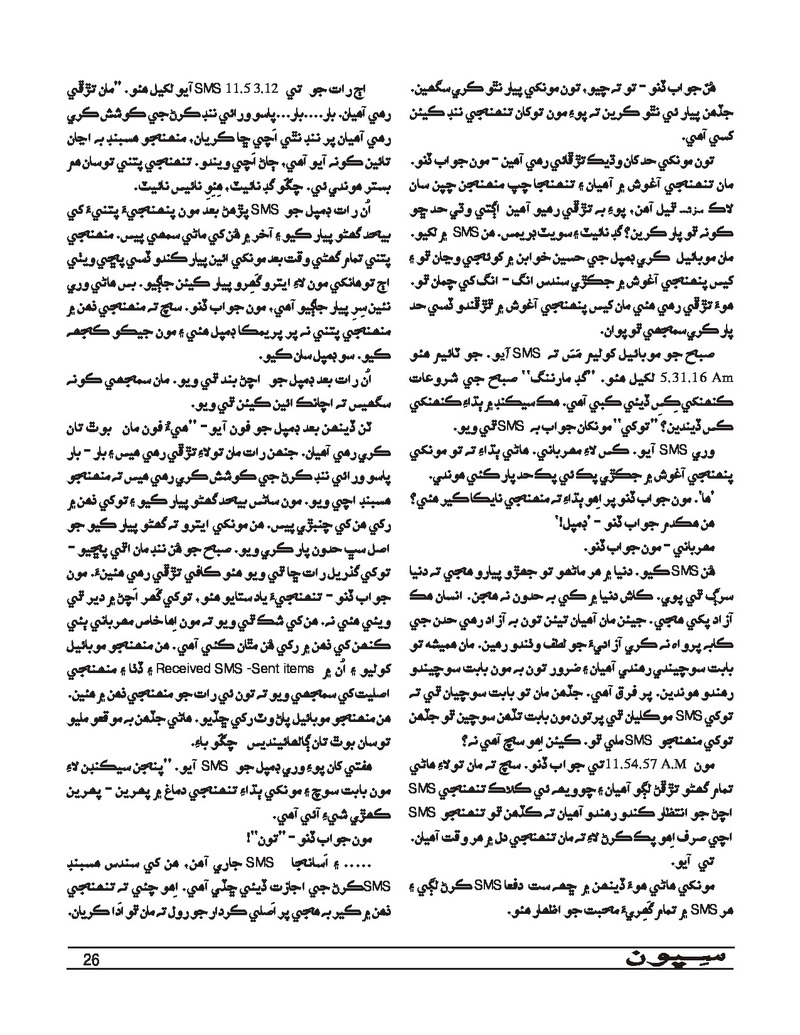 هُنَ جواب ڏنو – تو ته چيو، تون مونکي پيار نٿو ڪري سگهين.
جڏهن پيار ئي نٿو ڪرين ته پوءِ مون توکان تنهنجي ننڊ ڪيئن
کسي آهي.
تون مونکي حد کان وڌيڪ تڙڦائي رهي آهين – مون جواب ڏنو.
مان تنهنجي آغوش ۾ آهيان ۽ تنهنجا چپ منهنجن چپن سان
لاڪ سزشه ٿيل آهن، پوءِ به تڙڦي رهيو آهين اڳتي وڌي حد ڇو
ڪونه ٿو پار ڪرين؟ گڊ نائيٽ ۽ سويٽ ڊريمس. هن SMS ۾ لکيو.
مان موبائيل ڪري ڊمپل جي حسين خوابن ۾ کوئجي وڃان ٿو ۽
کيس پنهنجي آغوش ۾ جڪڙي سندس انگ – انگ کي چمان ٿو.
هوءَ تڙڦي رهي هئي مان کيس پنهنجي آغوش ۾ ڦڙڦندو ڏسي حد
پار ڪري سمجهي ٿو پوان.
صبح جو موبائيل کوليم مَسَ ته SMS آيو. جو ٽائيم هئو
5.31.16 Am لکيل هئو. ”گڊ مارننگ“ صبح جي شروعات
ڪنهنکي ڪِس ڏيئي ڪبي آهي. هڪ سيڪنڊ ۾ ٻڌاءِ ڪنهنکي
ڪس ڏيندين؟ ”توکي“ مونکان جواب به SMS ٿي ويو.
وري SMS آيو. ڪس لاءِ مهرباني. هاڻي ٻڌاءِ ته تو مونکي
پنهنجي آغوش ۾ جڪڙي پڪ ئي پڪ حد پار ڪئي هوندي.
’ها‘. مون جواب ڏنو پر اِهو ٻڌاءِ ته منهنجي نايڪا ڪير هئي؟
هن هڪدم جواب ڏنو – ’ڊمپل!‘
مهرباني – مون جواب ڏنو.
هُن SMS ڪيو. دنيا ۾ هر ماڻهو تو جهڙو پيارو هجي ته دنيا
سرڳ ٿي پوي. ڪاش دنيا ۾ ڪي به حدون نه هجن. انسان هڪ
آزاد پکي هجي. جيئن مان آهيان تيئن تون به آزاد رهي حدن جي
ڪابه پرواه نه ڪري آزاديءَ جو لطف وٺندو رهين. مان هميشه تو
بابت سوچيندي رهندي آهيان ۽ ضرور تون به مون بابت سوچيندو
رهندو هوندين. پر فرق آهي. جڏهن مان تو بابت سوچيان ٿي ته
توکي SMS موڪليان ٿي پر تون مون بابت تڏهن سوچين ٿو جڏهن
توکي منهنجو SMS ملي ٿو. ڪيئن اِهو سچ آهي نه؟
مون 11.54.57 A.M تي جواب ڏنو. سچ ته مان تو لاءِ هاڻي
تمام گهڻو تڙڦڻ لڳو آهيان ۽ چوويهه ئي ڪلاڪ تنهنجي SMS
اچڻ جو انتظار ڪندو رهندو آهيان ته ڪڏهن ٿو تنهنجو SMS
اچي صرف اِهو پڪ ڪرڻ لاءِ ته مان تنهنجي دل ۾ هر وقت آهيان.
تي آيو.
مونکي هاڻي هوءَ ڏينهن ۾ ڇهه ست دفعا SMS ڪرڻ لڳي ۽
هر SMS ۾ تمام گَهريءَ محبت جو اظهار هئو.
اڄ رات جو تي 11.5 3.12 SMS آيو لکيل هئو. ”مان تڙڦي
رهي آهيان. بار....بار...پاسو ورائي ننڊ ڪرڻ جي ڪوشش ڪري
رهي آهيان پر ننڊ نٿي اَچي ڇا ڪريان، منهنجو هسبنڊ به اڃان
تائين ڪونه آيو آهي، ڄاڻ اَچي ويندو. تنهنجي پتني توسان هم
بستر هوندي ئي. چڱو گڊ نائيٽ، هئو نائيس نائيٽ.
اُن رات ڊمپل جو SMS پڙهڻ بعد مون پنهنجيءَ پتنيءَ کي
بيحد گهڻو پيار ڪيو ۽ آخر ۾ هُن کي ماڻي سمهي پيس. منهنجي
پتني تمام گهڻي وقت بعد مونکي ائين پيار ڪندو ڏسي پڇي ويٺي
اڄ توهانکي مون لاءِ ايترو گَهرو پيار ڪيئن جاڳيو. بس هاڻي وري
نئين سِر پيار جاڳيو آهي، مون جواب ڏنو. سچ ته منهنجي ذهن ۾
منهنجي پتني نه پر پريمڪا ڊمپل هئي ۽ مون جيڪو ڪجهه
ڪيو. سو ڊمپل سان ڪيو.
اُن رات بعد ڊمپل جو اچڻ بند ٿي ويو. مان سمجهي ڪونه
سگهيس ته اچانڪ ائين ڪيئن ٿي ويو.
ٽن ڏينهن بعد ڊمپل جو فون آيو – ”هيءُ فون مان بوٿ تان
ڪري رهي آهيان. جنهن رات مان تو لاءِ تڙڦي رهي هيس ۽ بار – بار
پاسو ورائي ننڊ ڪرڻ جي ڪوشش ڪري رهي هيس ته منهنجو
هسبنڊ اچي ويو. مون ساڻس بيحد گهڻو پيار ڪيو ۽ توکي ذهن ۾
رکي هن کي چنبڙي پيس. هن مونکي ايترو ته گهڻو پيار ڪيو جو
اصل سڀ حدون پار ڪري ويو. صبح جو هُن ننڊ مان اٿي پڇيو –
توکي گذريل رات ڇا ٿي ويو هئو ڪافي تڙڦي رهي هئينءَ. مون
جواب ڏنو – تنهنجيءَ ياد ستايو هئو، توکي گهر اَچڻ ۾ دير ٿي
ويئي هئي نه. هن کي شڪ ٿي ويو ته مون اِها خاص مهرباني ٻئي
ڪنهن کي ذهن ۾ رکي هُن مٿان ڪئي آهي. هن منهنجو موبائيل
کوليو ۽ اُن ۾ Received SMS -Sent items ۽ ڏٺا ۽ منهنجي
اصليت کي سمجهي ويو ته تون ئي رات جو منهنجي ذهن ۾ هئين.
هن منهنجو موبائيل پاڻ وٽ رکي ڇڏيو. هاڻي جڏهن به موقعو مليو
توسان بوٿ تان ڳالهائينديس چڱو باءِ.
هفتي کان پوءِ وري ڊمپل جو SMS آيو. ”پنجن سيڪنڊن لاءِ
مون بابت سوچ ۽ مونکي ٻڌاءِ تنهنجي دماغ ۾ پهرين – پهرين
ڪهڙي شيءِ آئي آهي.
مون جواب ڏنو – ”تون“!
..... ۽ اَسانجا SMS جاري آهن، هن کي سندس هسبنڊ
SMS ڪرڻ جي اجازت ڏيئي ڇڏي آهي. اِهو چئي ته تنهنجي
ذهن ۾ ڪير به هجي پر اَصلي ڪردار جو رول ته مان ٿو اَدا ڪريان.
26
سِپون